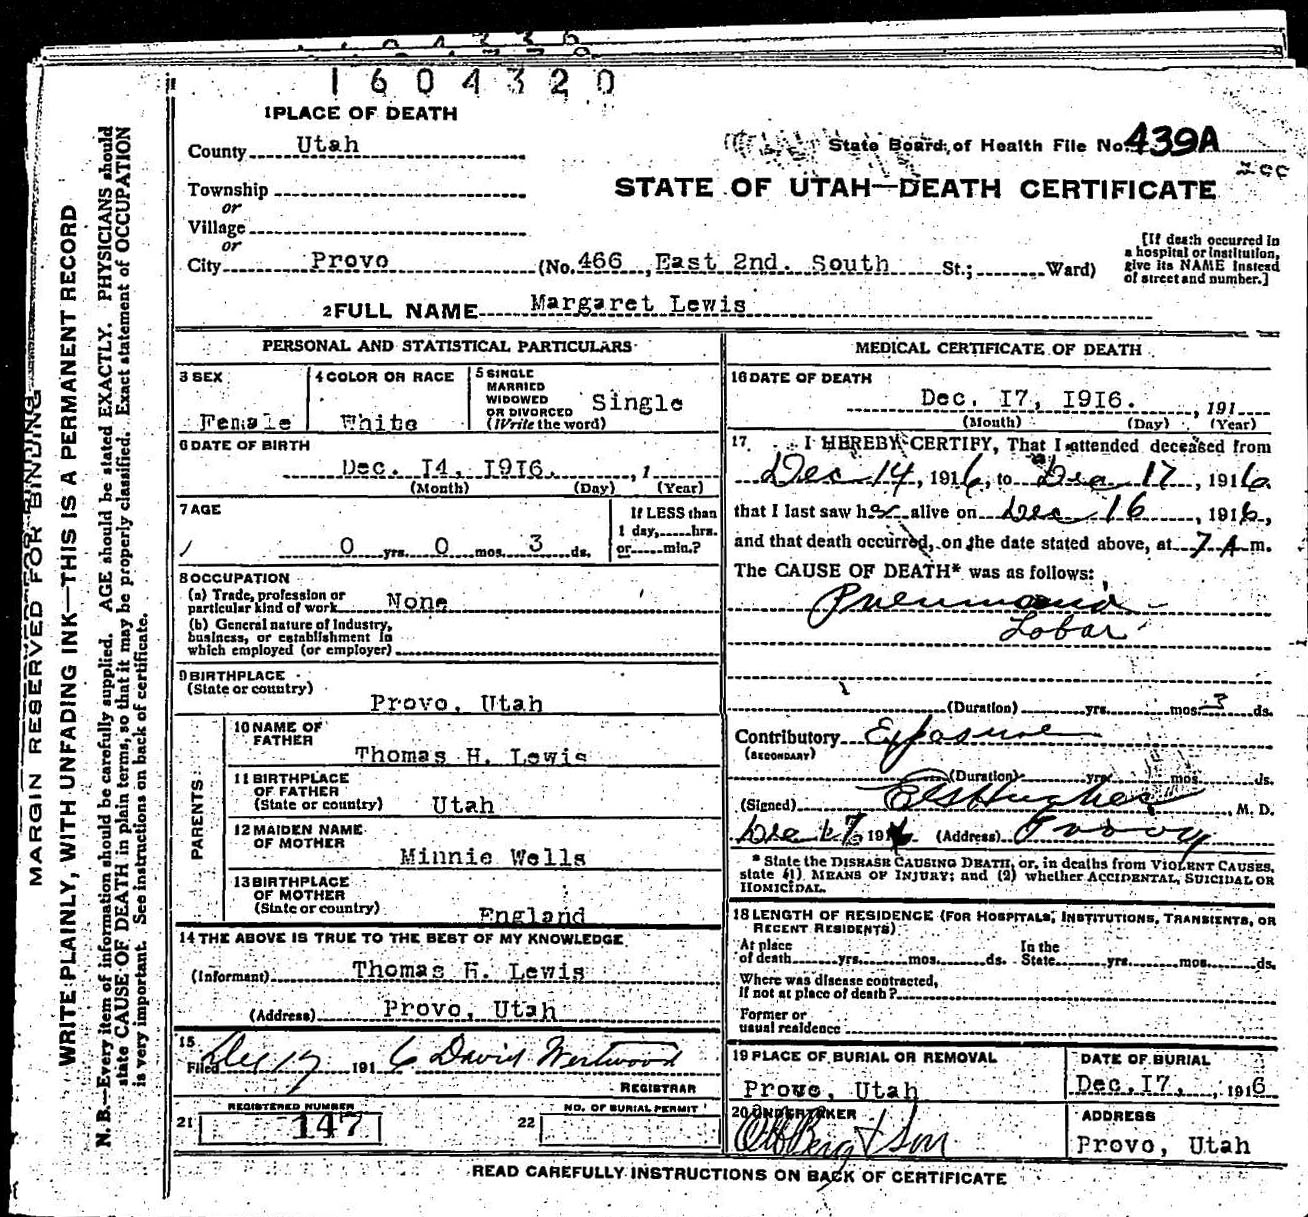 1604320
1 PLACE OF DEATH
County Utah
State Board of Health File No. 439A
Township
or
STATE OF UTAH—DEATH CERTIFICATE
Village
or
City Provo (No. 466, East 2nd. South St.; Ward)
[If death occurred in
a hospital or institution,
give its NAME instead
of street and number.]
2 FULL NAME Margaret Lewis
PERSONAL AND STATISTICAL PARTICULARS
3 SEX
Female
4 COLOR OR RACE
White
5 SINGLE
MARRIED
WIDOWED
OR DIVORCED
(Write the word)
Single
6 DATE OF BIRTH
Dec. 14, 1916. , 1
(Month) (Day) (Year)
7 AGE
0 yrs. 0 mos. 3 ds.
If LESS than
1 day, hrs.
or min.?
8 OCCUPATION
(a) Trade, profession or
particular kind of work None
(b) General nature of Industry,
business, or establishment in
which employed (or employer)
9 BIRTHPLACE
(State or country)
Provo, Utah
PARENTS
10 NAME OF
FATHER
Thomas H. Lewis
11 BIRTHPLACE
OF FATHER
(State or country) Utah
12 MAIDEN NAME
OF MOTHER
Minnie Wells
13 BIRTHPLACE
OF MOTHER
(State or country)
England
14 THE ABOVE IS TRUE TO THE BEST OF MY KNOWLEDGE
(Informant) Thomas H. Lewis
(Address) Provo, Utah
15
Filed Dec 17 1916 David Westwood
REGISTRAR
21 REGISTERED NUMBER
147
22 NO. OF BURIAL PERMIT
MEDICAL CERTIFICATE OF DEATH
16 DATE OF DEATH
Dec. 17, 1916. , 191
(Month) (Day) (Year)
17. I HEREBY CERTIFY, That I attended deceased from
Dec 14, 1916, to Dec 17, 1916.
that I last saw her alive on Dec 16, 1916,
and that death occurred, on the date stated above, at 7 A m.
The CAUSE OF DEATH* was as follows:
Pneumonia
Lobar
(Duration) yrs. mos. 3 ds.
Contributory Exposure
(SECONDARY)
(Duration) yrs. mos. ds.
(Signed) Hughes, M. D.
Dec 17 1916 (Address) Provo
* State the DISEASE CAUSING DEATH, or, in deaths from VIOLENT CAUSES,
state (1) MEANS OF INJURY; and (2) whether ACCIDENTAL, SUICIDAL OR
HOMICIDAL.
18 LENGTH OF RESIDENCE (FOR HOSPITALS, INSTITUTIONS, TRANSIENTS, OR
RECENT RESIDENTS)
At place
of death yrs. mos. ds.
In the
State yrs. mos. ds.
Where was disease contracted,
if not at place of death?
Former or
usual residence
19 PLACE OF BURIAL OR REMOVAL
Provo, Utah
DATE OF BURIAL
Dec. 17, , 1916
20 UNDERTAKER
Berg & Son
ADDRESS
Provo, Utah
READ CAREFULLY INSTRUCTIONS ON BACK OF CERTIFICATE
MARGIN RESERVED FOR BINDING
WRITE PLAINLY, WITH UNFADING INK—THIS IS A PERMANENT RECORD
N. B.—Every item of information should be carefully supplied. AGE should be stated EXACTLY. PHYSICIANS should
state CAUSE OF DEATH in plain terms, so that it may be properly classified. Exact statement of OCCUPATION
is very important. See instructions on back of certificate.